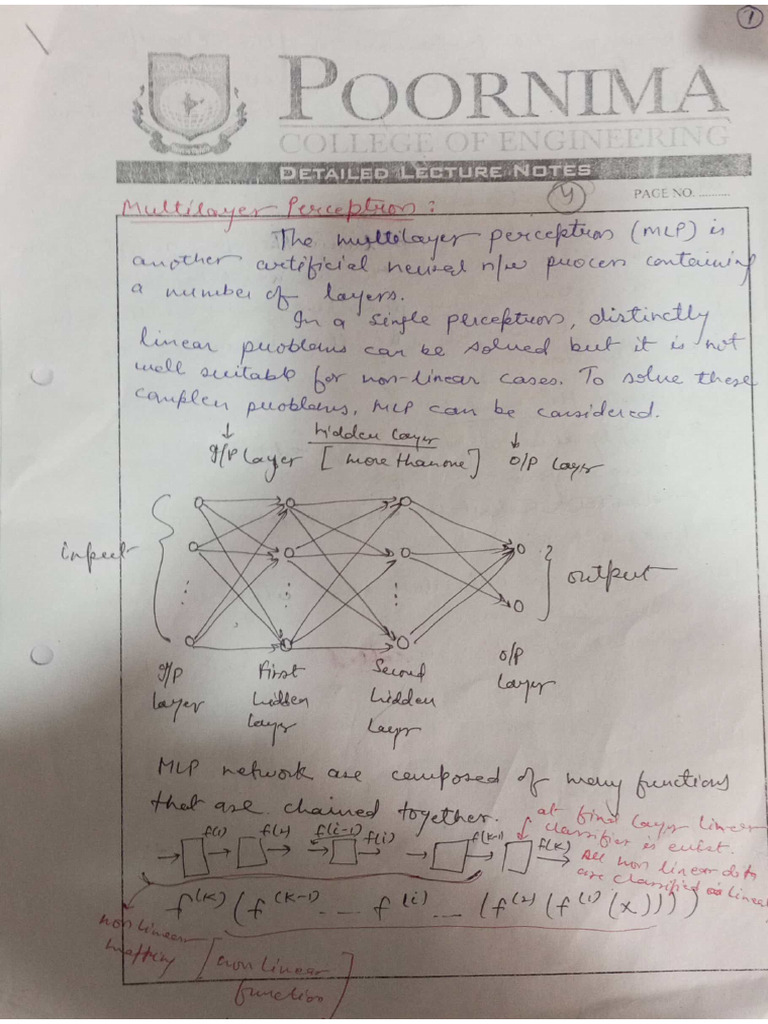 1
POORNIMA
POORNIMA
COLLEGE OF ENGINEERING
DETAILED LECTURE NOTES
PAGE NO. ...........
Multilayer Perceptron:
The multilayer perceptron (MLP) is
another artificial neural n/w process containing
a number of layers.
In a single perceptron, distinctly
linear problems can be solved but it is not
well suitable for non-linear cases. To solve these
complex problems, MLP can be considered.
hidden layer
I/P layer [more than one] O/P layer
input
output
I/P layer
First hidden layer
Second hidden layer
O/P layer
MLP network are composed of many functions
that are chained together.
at final layer linear
classifier is exist.
f(1) f(2) f(i-1) f(i) f(k-1) f(k)
All non linear data
are classified as linear
f(k) (f(k-1) --- f(i) --- (f(2) (f(1) (x))))
non linear
[non linear
function]